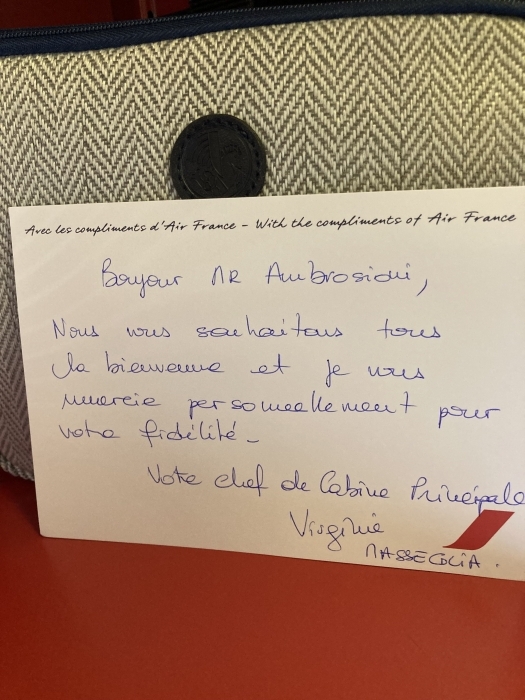 Avec les compliments d'Air France - With the compliments of Air France
Bonjour MR Ambrosidui,
Nous vous souhaitons tous
la bienvenue et je vous
remercie personnellement pour
votre fidélité -
Votre chef de Cabine Principale
Virginie
MASSEGLIA.